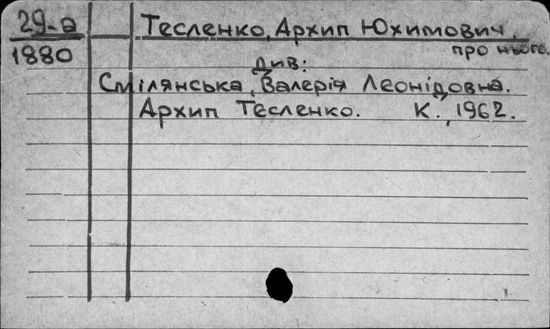 29-а Тесленко, Архип Юхимович,
1880 про нього.
див:
Смілянська, Валерія Леонідовна.
Архип Тесленко. К., 1962.